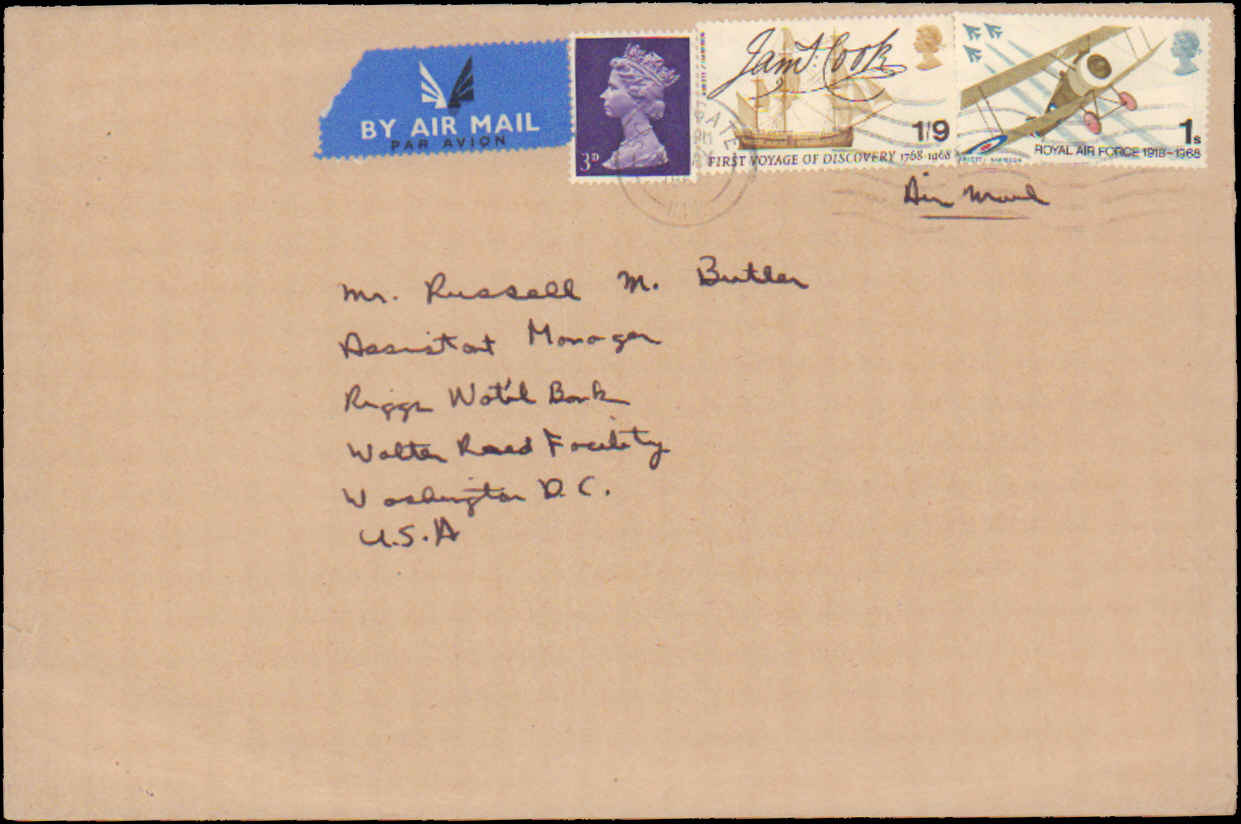 BY AIR MAIL
PAR AVION
3D
Jams. Cook
1/9
FIRST VOYAGE OF DISCOVERY 1768-1968
1s
ROYAL AIR FORCE 1918-1968
Air Mail
Mr. Russell M. Butler
Assistant Manager
Riggs Nat'l Bank
Walter Reed Facility
Washington D.C.
U.S.A